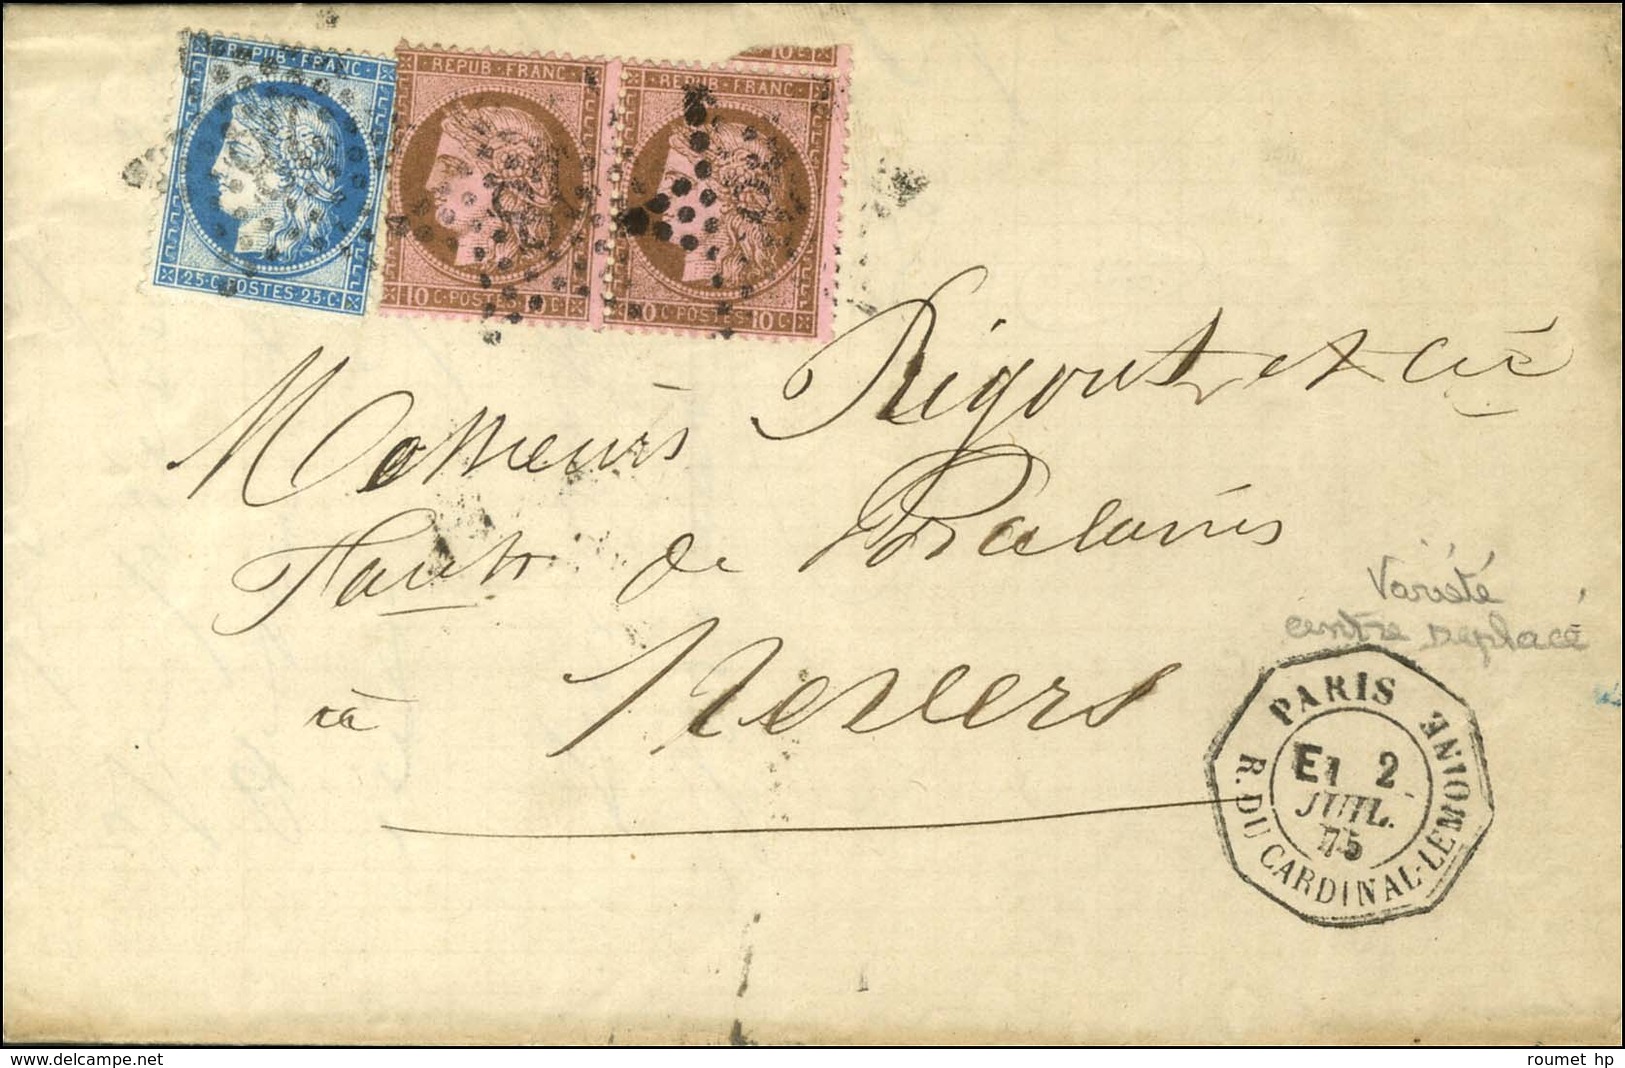 REPUB · FRANC ·
25 · C · POSTES · 25 · C ·
· REPUB · FRANC ·
10 C · POSTES · 10 C ·
10 C ·
· REPUB · FRANC ·
10 C · POSTES · 10 C ·
Messieurs Rigout et Cie
Faubg de
à Nevers
Variété
centre déplacé
PARIS
E1 2
JUIL.
75
R. DU CARDINAL-LEMOINE
www.delcampe.net
roumet hp